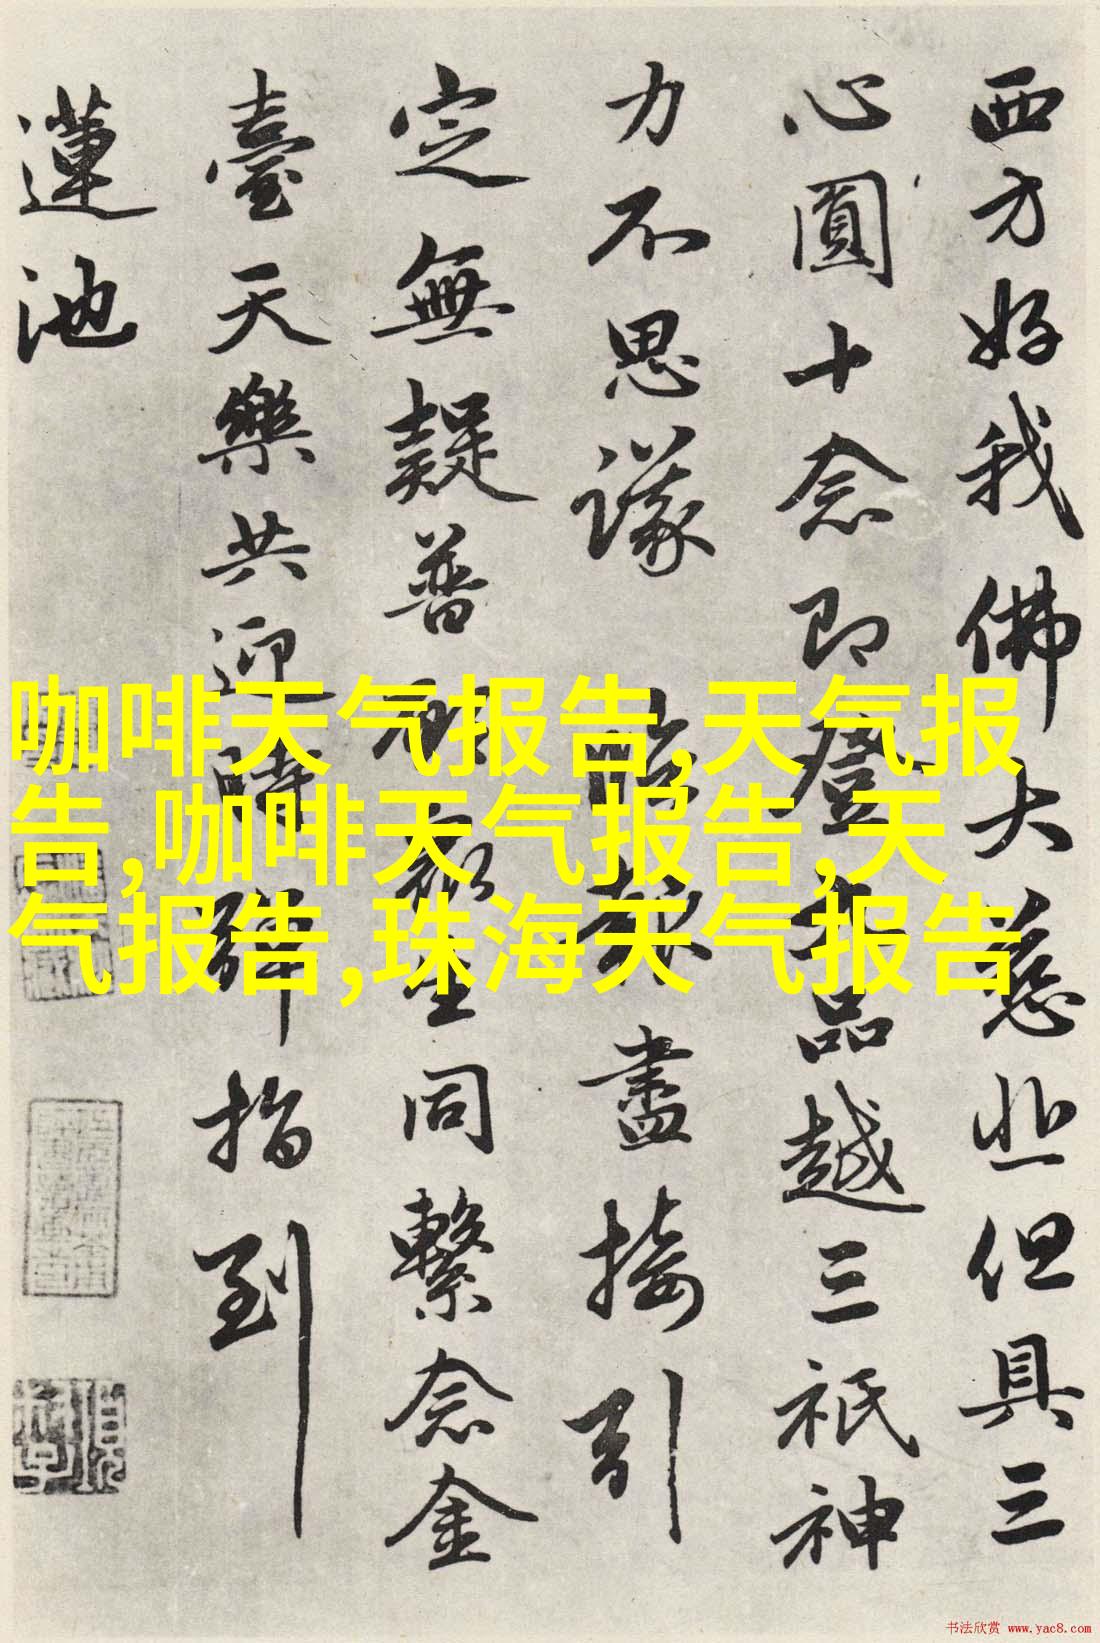 西方好我佛大慈悲但具三
心圓十念即登上品越三祇神
力不思議 臨終盡接引
定無疑普願眾生同繫念金
臺天樂共迎時彈指到
蓮池
咖啡天气报告,天气报
告,咖啡天气报告,天
气报告,珠海天气报告
书法欣赏 www.yac8.com